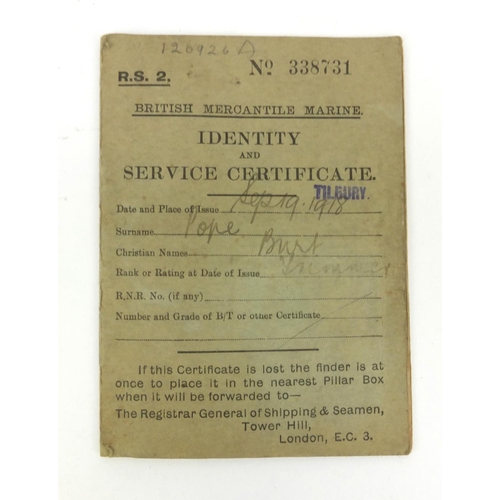 120920 A
R.S. 2. Nº 338731
BRITISH MERCANTILE MARINE.
IDENTITY
AND
SERVICE CERTIFICATE.
TILBURY.
Date and Place of Issue Sep 19. 1918
Surname Pope
Christian Names Burt
Rank or Rating at Date of Issue
R,N.R. No. (if any)
Number and Grade of B/T or other Certificate
If this Certificate is lost the finder is at
once to place it in the nearest Pillar Box
when it will be forwarded to—
The Registrar General of Shipping & Seamen,
Tower Hill,
London, E.C. 3.